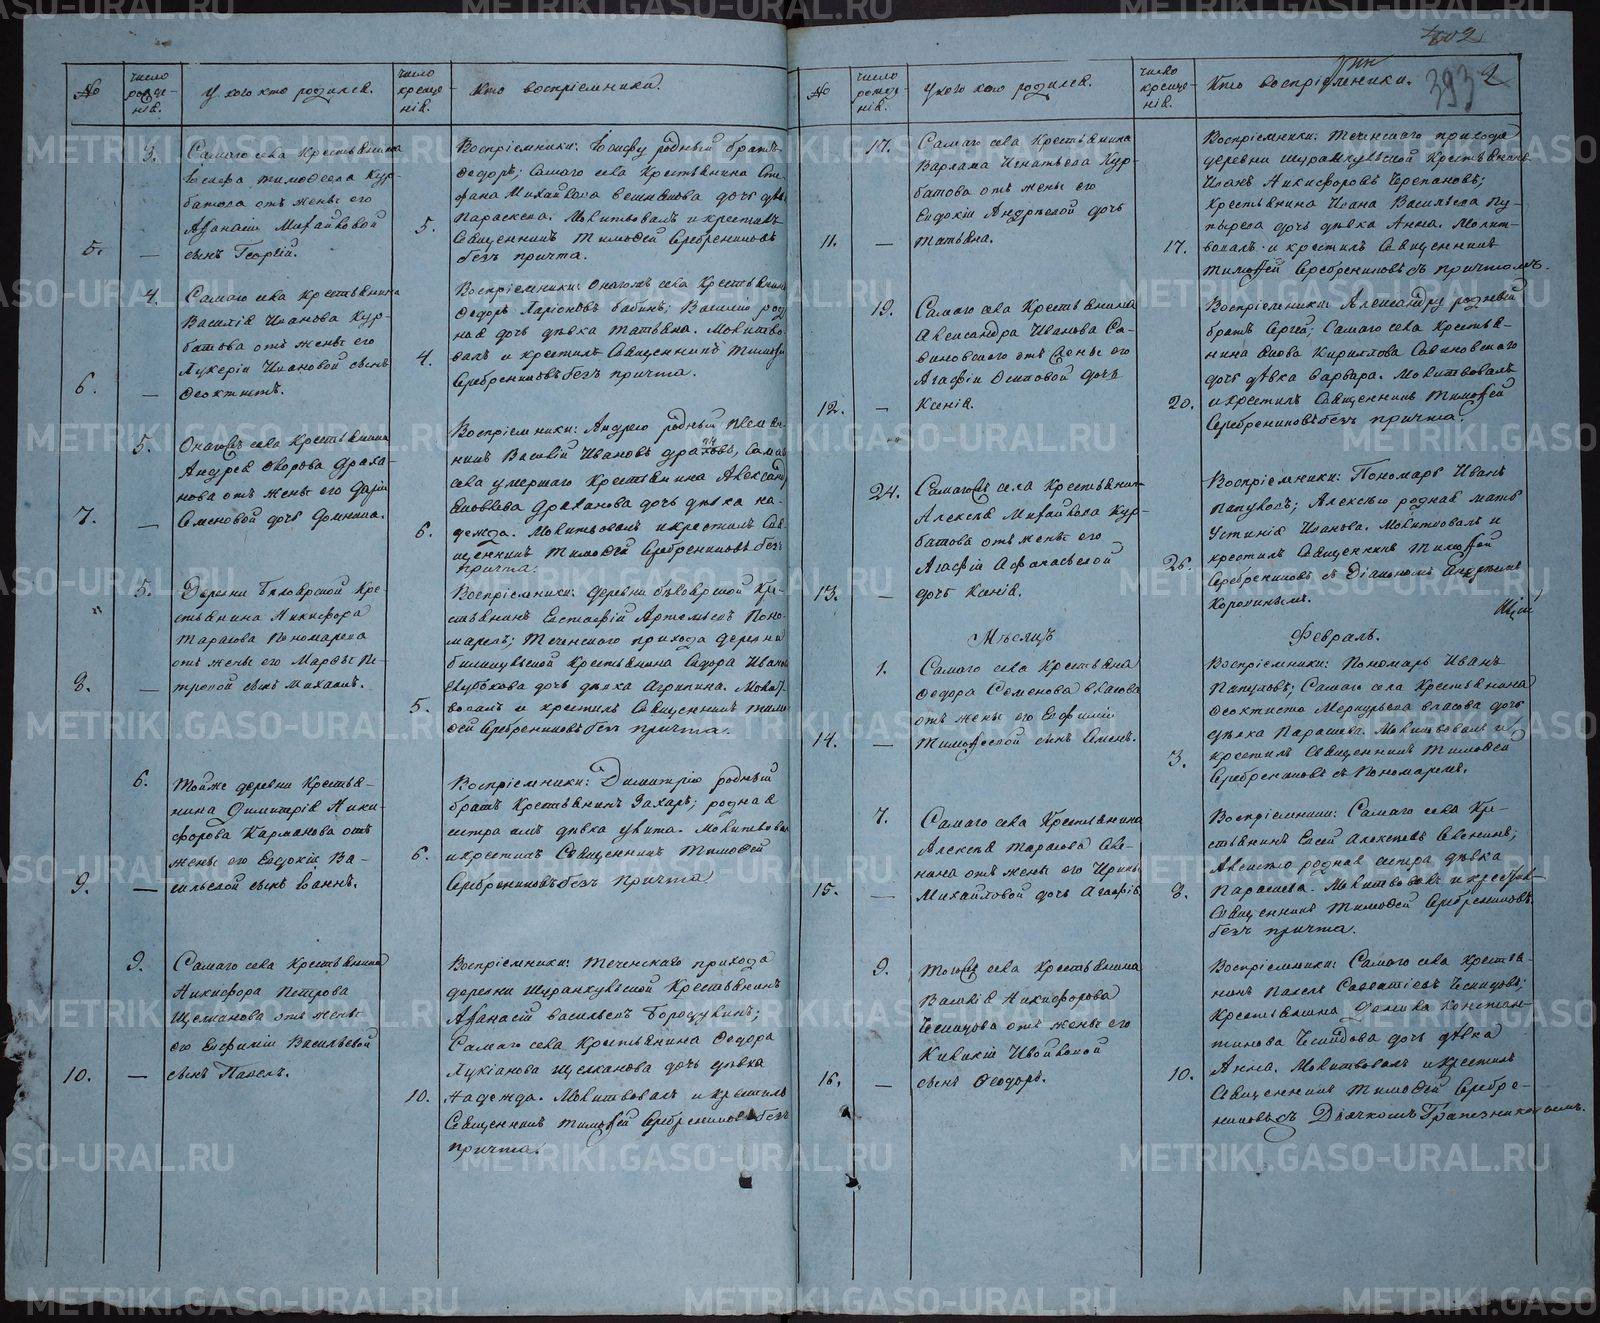 №
число рожде-
нія.
У кого кто родился.
число
креще-
нія.
Кто воспріемники.
3.
Самаго села Крестьянина
Іосифа Тимофеева Кур-
батова отъ жены его
Афанасіи Михайловой
5.
—
сынъ Георгій.
5.
Воспріемники: Іосифу родный братъ
Ѳедоръ; Самаго села Крестьянина Сте-
фана Михайлова дочь дѣв.
Параскева. Молитвовалъ и крестилъ
Священникъ Тимофей Серебрениковъ
безъ причта.
4.
Самаго села Крестьянина
Василія Иванова Кур-
батова отъ жены его
Лукеріи Ивановой сынъ
6.
—
Ѳеоктистъ.
4.
Воспріемники: Онагожъ села Крестьянин
Ѳедоръ Ларіоновъ Бабинъ; Василію род
ная дочь дѣвка Татьяна. Молитво-
валъ и крестилъ Священникъ Тимофей
Серебрениковъ безъ причта.
5.
Онагожъ села Крестьянина
Андрея Драха-
нова отъ жены его Дарьи
7.
—
Семеновой дочь Домника.
6.
Воспріемники: Андрею родный племян-
никъ Василій Ивановъ Самаго
села умершаго Крестьянина Александ
Яковлева Драханова дочь дѣвка На-
дежда. Молитвовалъ и крестилъ Свя-
щенникъ Тимофей Серебрениковъ безъ
причта.
5.
Деревни Кре-
стьянина Никифора
Тарасова Пономарева
отъ жены его Марѳы Пе-
8.
—
тровой сынъ Михаилъ.
5.
Воспріемники: деревни Кре-
стьянинъ Евстафій Артемьевъ Поно-
маревъ; Теченскаго прихода деревни
Крестьянина Сидора Иванов
дочь дѣвка Агрипина. Молит-
вовалъ и крестилъ Священникъ Тимо
фей Серебрениковъ безъ причта.
6.
Тойже деревни Крестья-
нина Димитрія Ники-
форова Карманова отъ
жены его Евдокіи Ва-
9.
—
сильевой сынъ Іоаннъ.
6.
Воспріемники: Димитрію родный
братъ Крестьянинъ Захаръ; родная
сестра имъ дѣвка Улита. Молитвовал
и крестилъ Священникъ Тимофей
Серебрениковъ безъ причта.
9.
Самаго села Крестьянина
Никифора Петрова
Щелканова отъ жены
его Евфиміи Васильевой
10.
—
сынъ Павелъ.
10.
Воспріемники: Теченскаго прихода
деревни Шуранкульской Крестьянинъ
Афанасій Васильевъ Бородулинъ;
Самаго села Крестьянина Ѳедора
Лукіанова Щелканова дочь дѣвка
Надежда. Молитвовалъ и крестилъ
Священникъ Тимофей Серебрениковъ безъ
причта.
402
393
2
№
число
рожде-
нія.
У кого кто родился.
число
креще-
нія.
Кто воспріемники.
17.
Самаго села Крестьянина
Варлама Игнатьева Кур-
батова отъ жены его
Евдокіи Андреевой дочь
11.
—
Татьяна.
17.
Воспріемники: Теченскаго прихода
деревни Шуранкульской Крестьянинъ
Иванъ Никифоровъ Черепановъ;
Крестьянина Ивана Васильева Пу-
зырева дочь дѣвка Анна. Молит-
вовалъ и крестилъ Священникъ
Тимофей Серебрениковъ съ причтомъ.
19.
Самаго села Крестьянина
Александра Иванова Са-
виновскаго отъ жены его
Агафіи Осиповой дочь
12.
—
Ксенія.
20.
Воспріемники: Александру родный
братъ Сергей; Самаго села Крестья-
нина Якова Кириллова Савиновскаго
дочь дѣвка Варвара. Молитвовалъ
и крестилъ Священникъ Тимофей
Серебрениковъ безъ причта.
24.
Самаго села Крестьянина
Алексея Михайлова Кур-
батова отъ жены его
Агафіи Афанасьевой
13.
—
дочь Ксенія.
26.
Воспріемники: Пономарь Иванъ
Папуловъ; Алексѣю родная мать
Устинія Иванова. Молитвовалъ и
крестилъ Священникъ Тимофей
Серебрениковъ съ Діакономъ Андреемъ
Коровинымъ.
Мѣсяцъ
Февраль.
1.
Самаго села Крестьянина
Ѳедора Семенова Власова
отъ жены его Евфиміи
14.
—
Тимофеевой сынъ Семенъ.
3.
Воспріемники: Пономарь Иванъ
Папуловъ; Самаго села Крестьянина
Ѳеоктиста Меркурьева Власова дочь
дѣвка Парасковья. Молитвовалъ и
крестилъ Священникъ Тимофей
Серебрениковъ съ Пономаремъ.
7.
Самаго села Крестьянина
Алексея Тарасова Аве-
нина отъ жены его Ирины
15.
—
Михайловой дочь Агафія
8.
Воспріемники: Самаго села Кре-
стьянинъ Елисей Алексѣевъ Авенинъ;
Алексѣю родная сестра дѣвка
Парасковья. Молитвовалъ и крестил
Священникъ Тимофей Серебрениковъ
безъ причта.
9.
Тогожъ села Крестьянина
Василія Никифорова
отъ жены его
16.
—
сынъ Ѳеодоръ.
10.
Воспріемники: Самаго села Крестья-
нинъ Павелъ Савватіевъ
Крестьянина Данила Констан-
тинова дочь дѣвка
Анна. Молитвовалъ и крестилъ
Священникъ Тимофей Серебре-
никовъ съ Дьячкомъ Трапезниковымъ.
METRIKI.GASO-URAL.RU